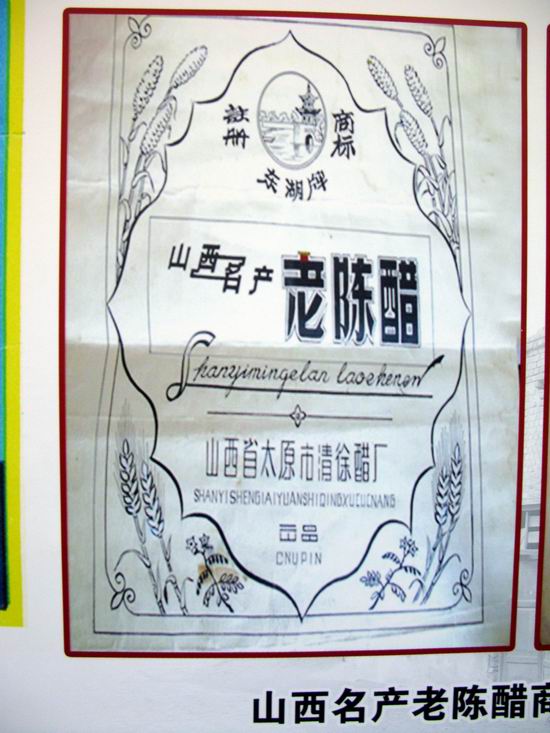 註册 商标
东湖牌
山西名产 老陈醋
Shanyimingelan laoehenen
山西省太原市清徐醋厂
SHANYISHENGIAIYUANSHIQINGXUCUCNANG
出品
CNUPIN
山西名产老陈醋商